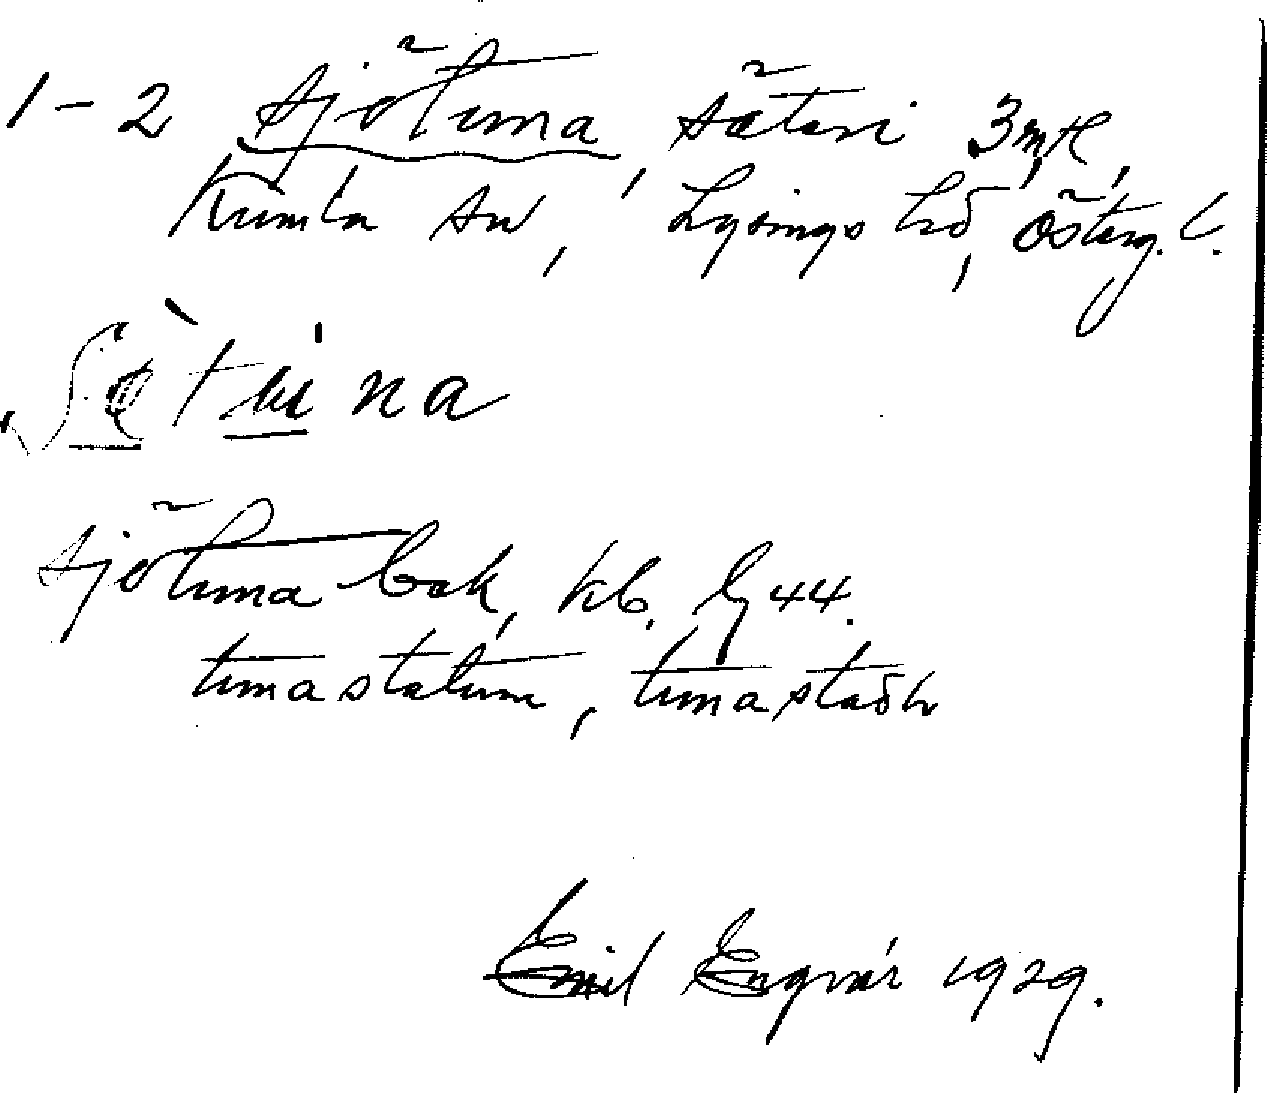 1-2 Sjötuna, säteri 3 mtl,
Kumla sn, Lysings hd, Österg. l.
Sjötuna bok, kb. Ly 44.
tunastatum, tunastadh
Emil Engvár 1929.